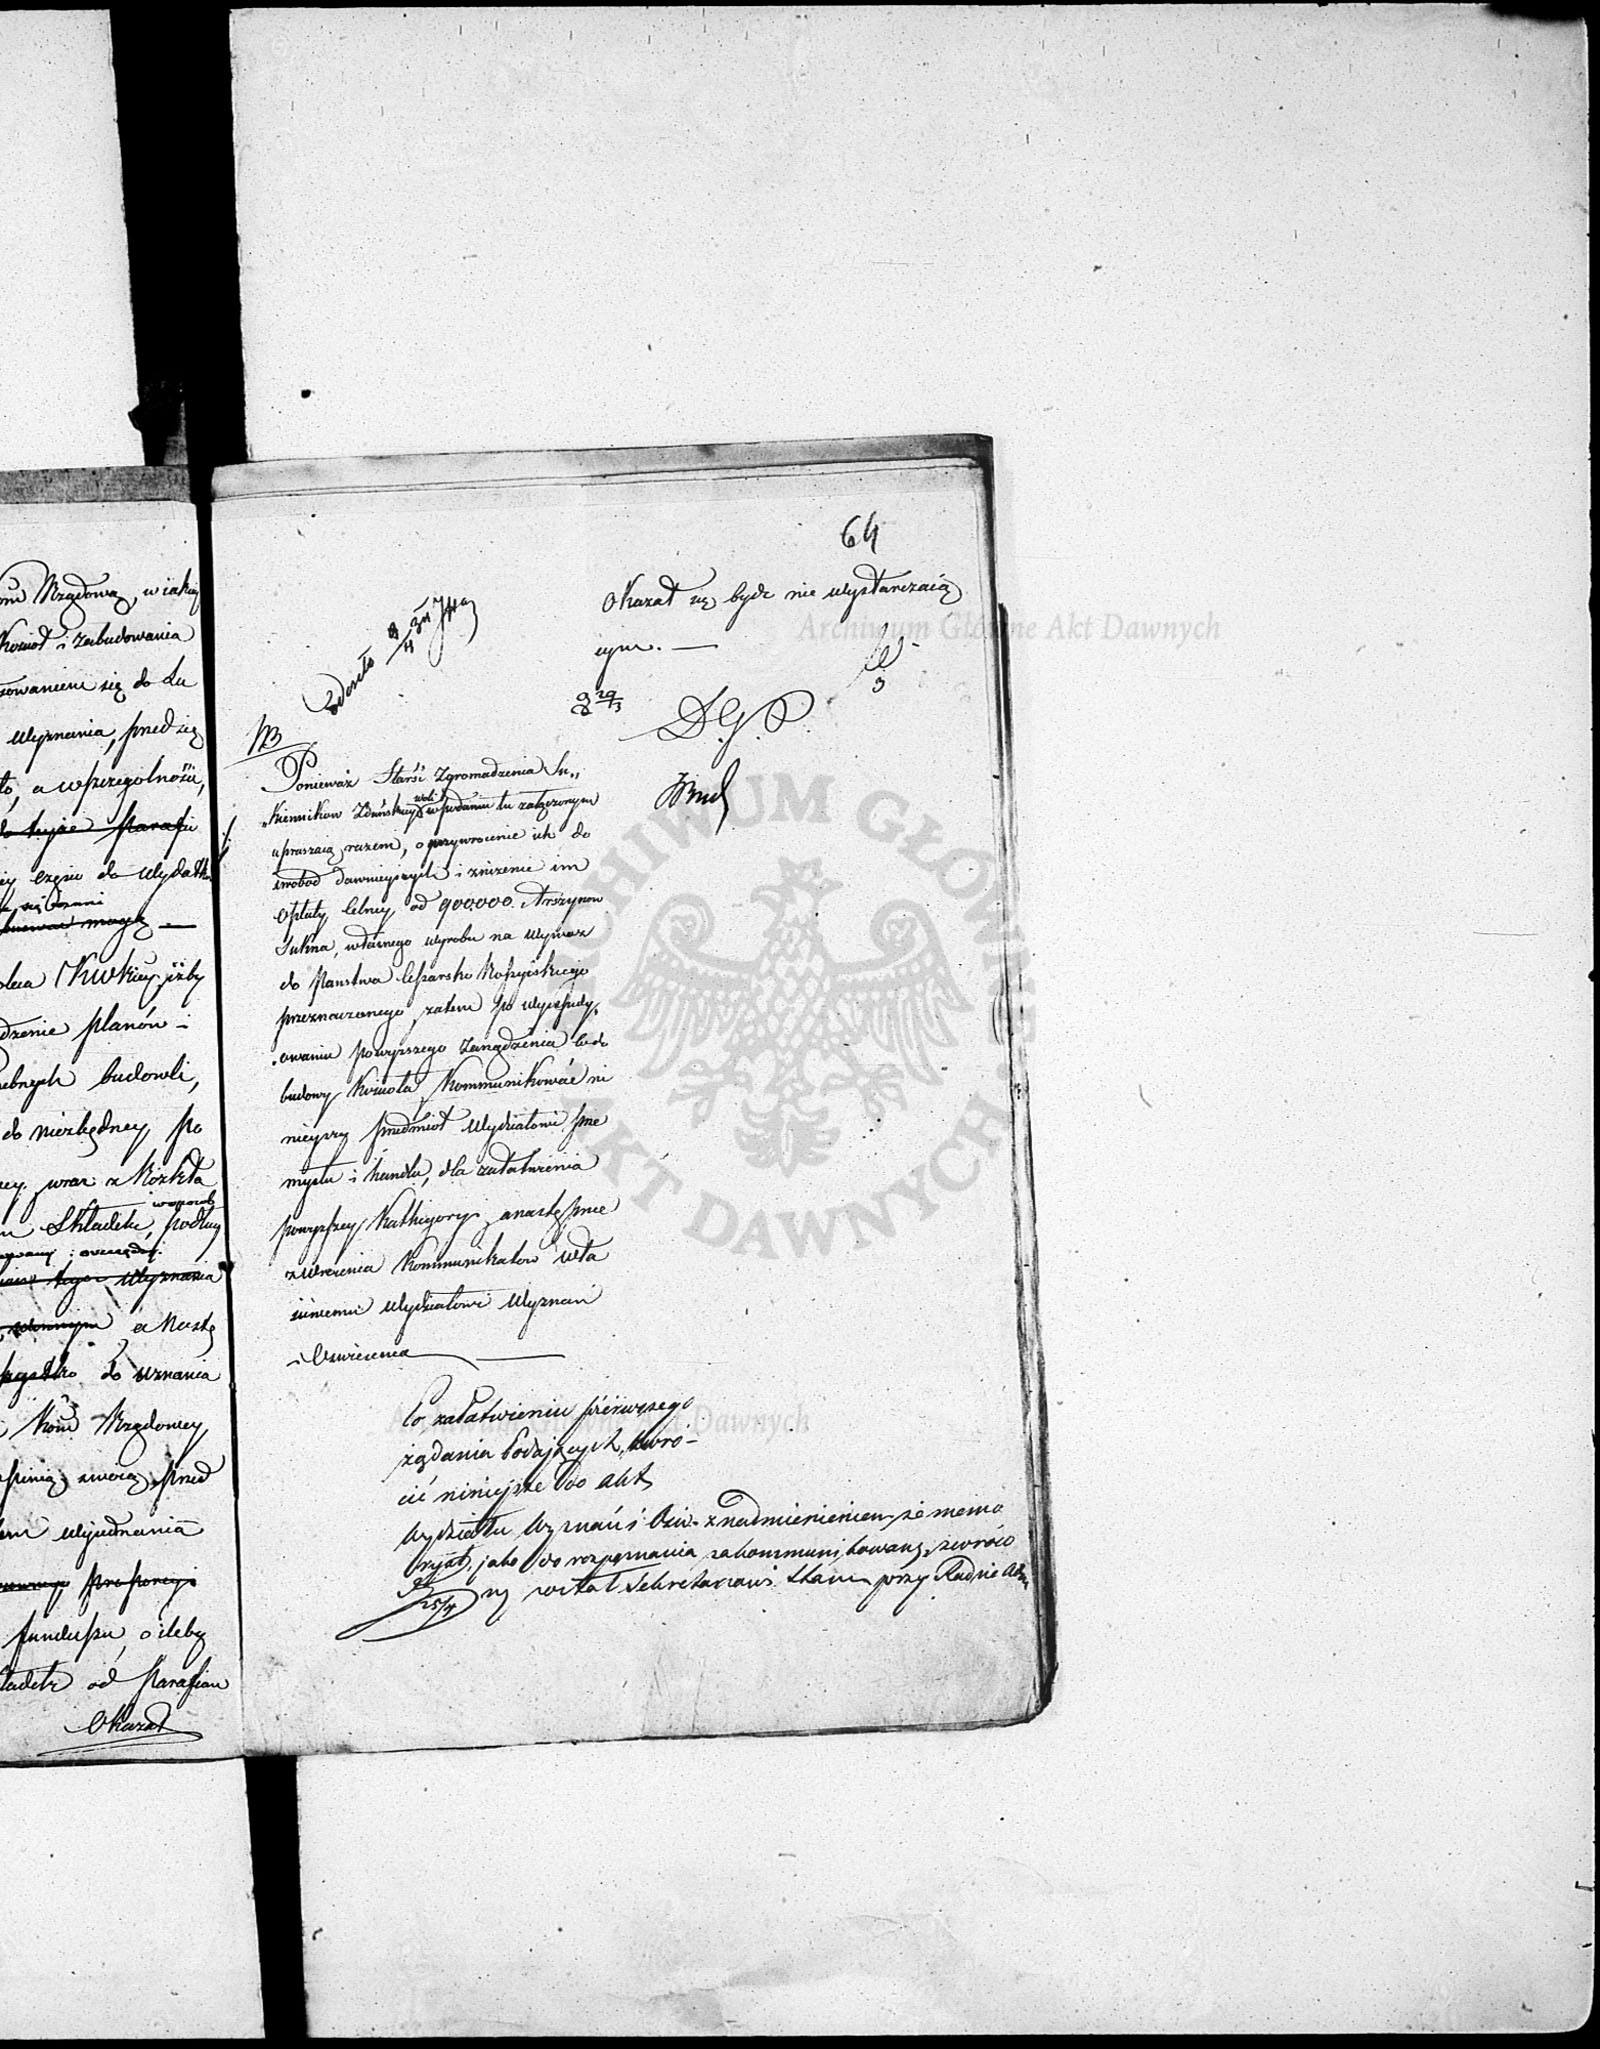 om̃ Rządową, w iakiej
Kosciół i zabudowania
sowaniem się do Lu
Wyznania, przedsię
to, a wszczególnosci,
do teyże Parafii
ey częsci do Wydatk
się dozani
mogą —
oleca KWkiey iżby
dzenie planów i
ebnych budowli,
do niezbędney po
ney wraz z Rozkła
i wsposob
m Składek, podług
tego Wyznania
a Nastę
wszystko do uznania
Kom̃ Rządowey
opinią swoią przed
em wyiednania
proporcyi
funduszu, o ileby
ładek od Parafian
Okazał
64
Okazał się bydz nie wystarczaią
cym. —
29/3
D.G.P.
NB
Ponieważ Starsi Zgromadzenia Su„
„kienników Zduńskiey woli w podaniu tu załączonym
upraszaią razem, o przywrocenie ich do
swobod dawnieyszych i zniżenie im
Opłaty Celney od 900.000 Arszynow
Sukna, własnego wyrobu na wywoz
do Panstwa Cesarsko Rossyiskiego
przeznaczonego, zatem po wyexpedy„
„owaniu powyższego Zarządzenia co do
budowy Kosciola, Kommunikować ni
nieyszy przedmiot Wydziałowi prze
mysłu i handlu, dla załatwienia
powyższey Kathegoryi, a następnie
zwrocenia Kommunikatow wła
sciwemu Wydziałowi Wyznań
i Oswiecenia
Po załatwieniu pierwszego
żądania Podających, zwró-
cić niniejsze do akt
Wydziału Wyznań i Ośw. z nadmienieniem, że memo
ryał, jako do rozpoznania zakommunikowany, zwróco
ny został Sekretarzowi Stanu przy Radzie Adm
25/4
Archiwum Główne Akt Dawnych
ARCHIWUM GŁÓWNE AKT DAWNYCH
Archiwum Główne Akt Dawnych